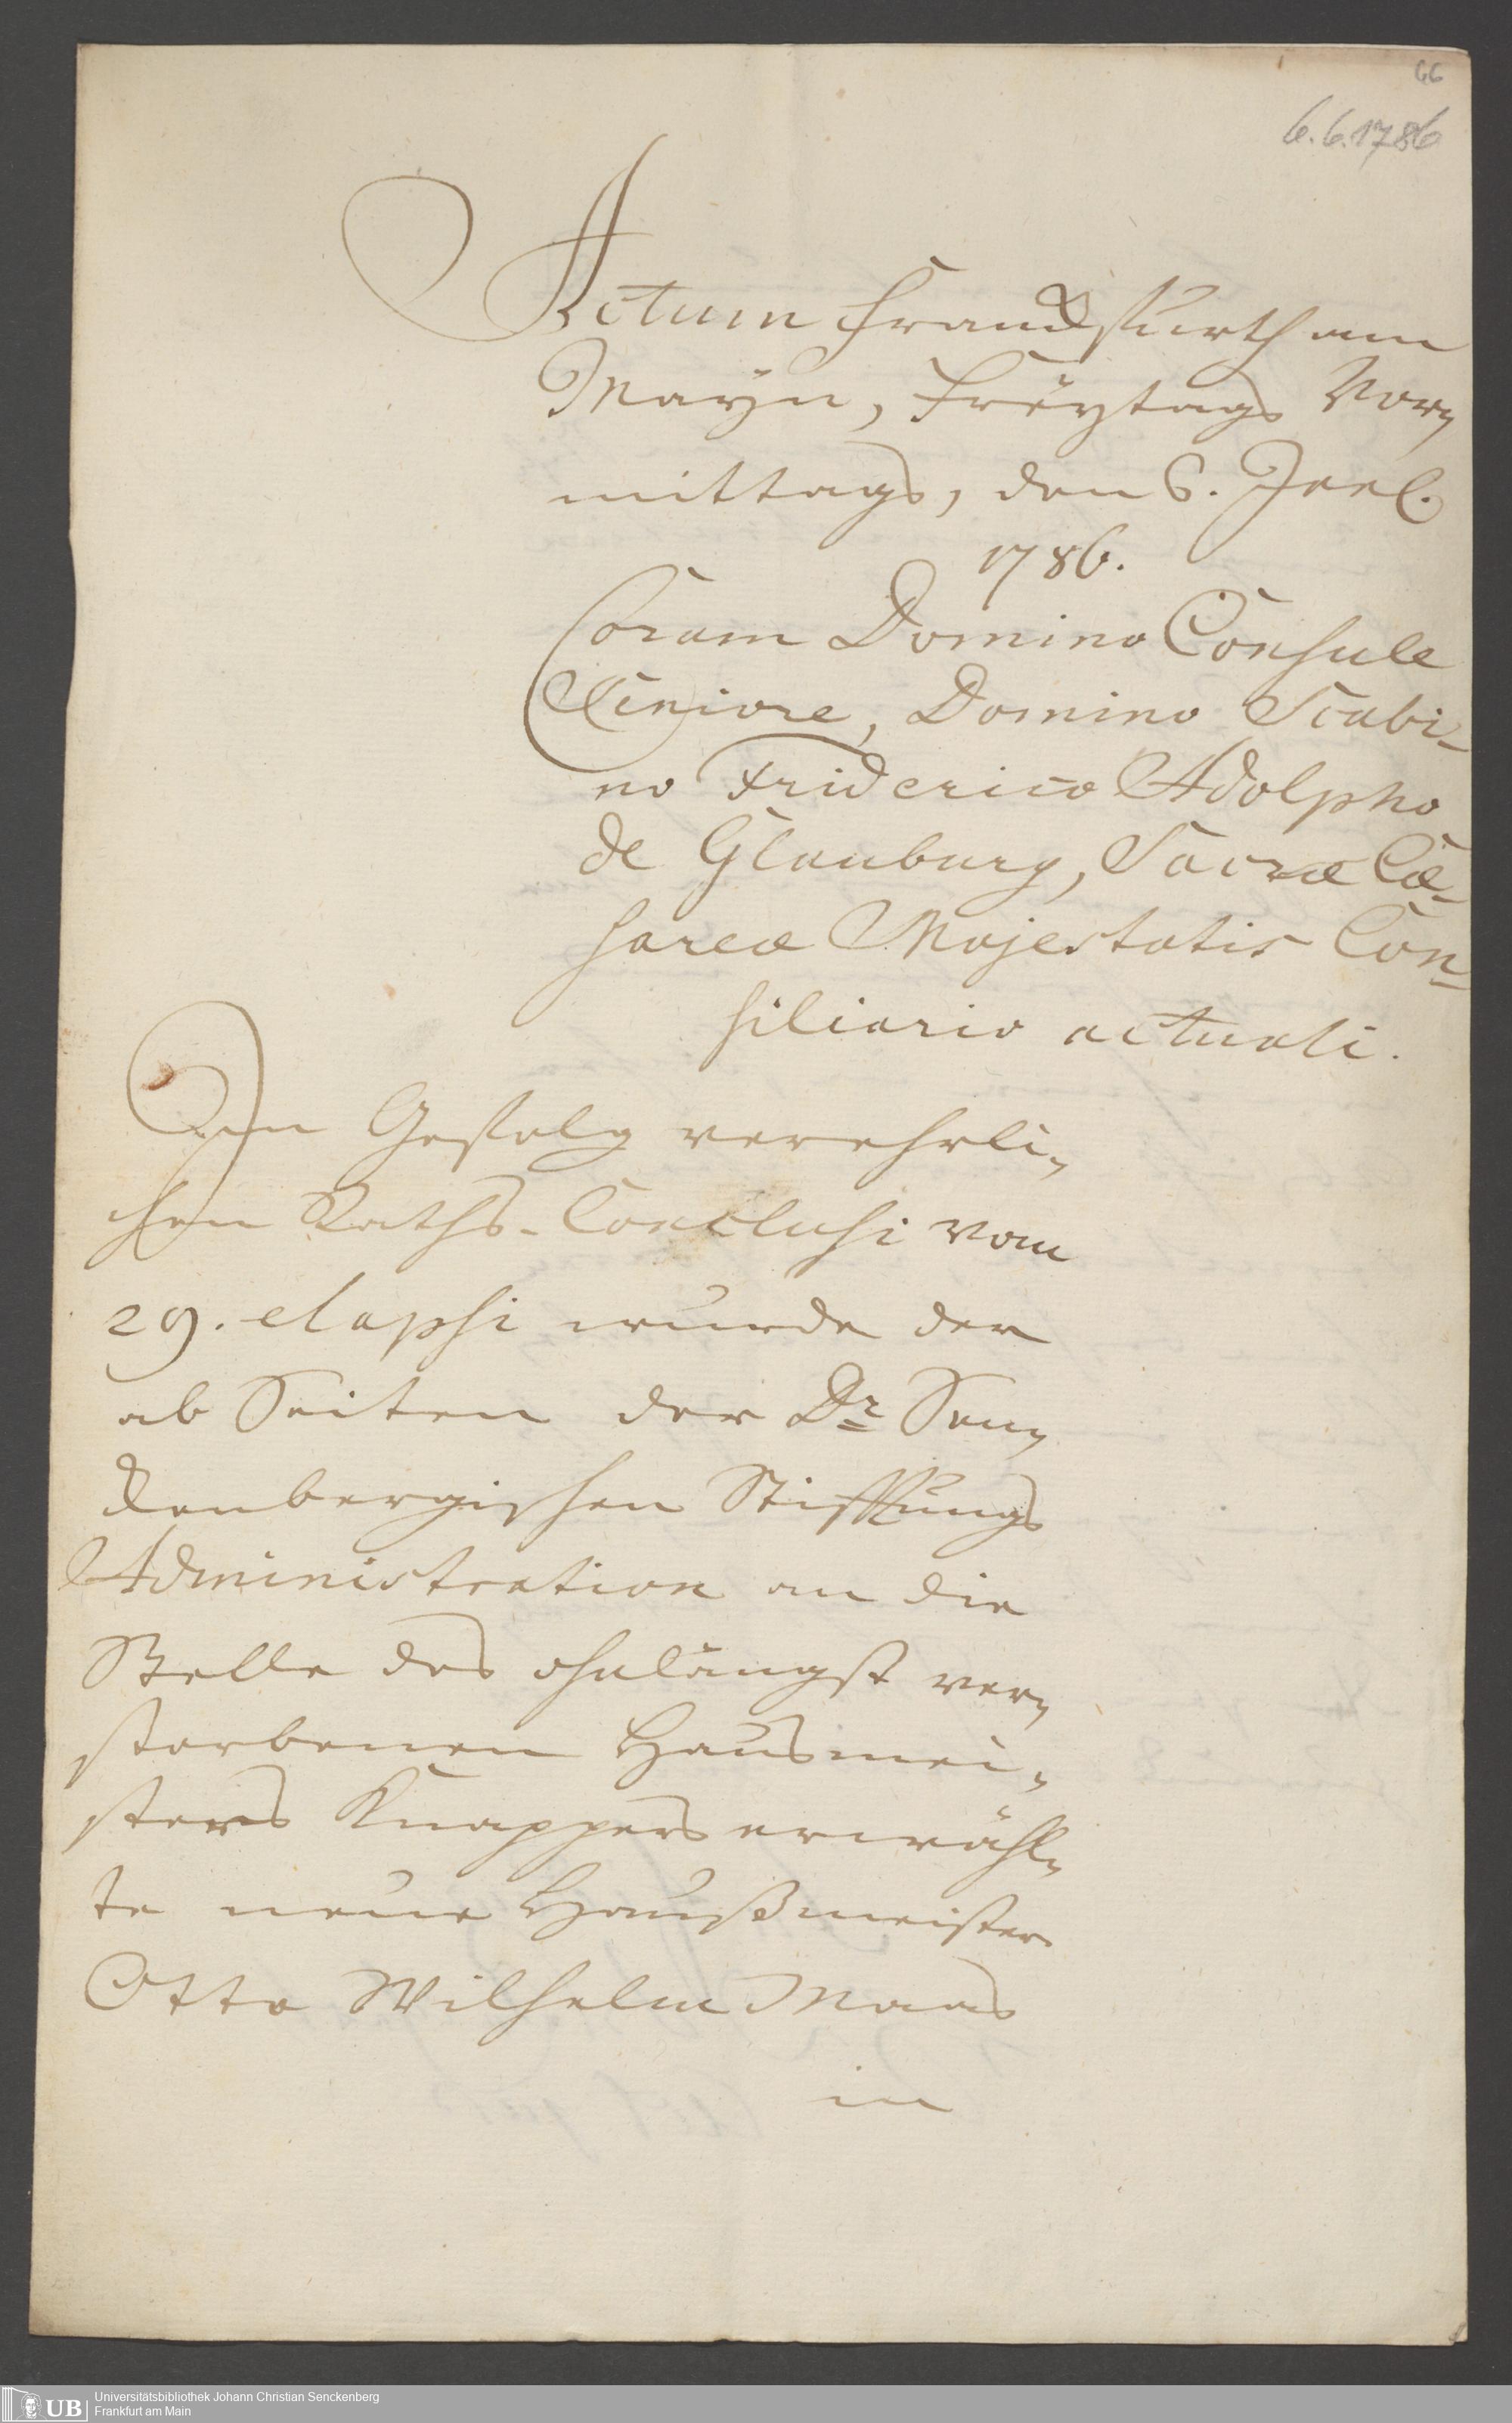 66
6.6.1786
Actum Franckfurth am
Mayn, Freytags Vor-
mittags, den 6.
1786.
Coram Domino Consule
Seniore, Domino Scabi-
no Friderico Adolpho
de Glauburg, Sacræ Cæ-
sareæ Majestatis Con-
siliario actuali.
In Gefolg verehrli-
chen Raths-Conclusi vom
29. elapsi wurde der
ab Seiten der Dr. Sen-
ckenbergischen Stifftungs
Administration an die
Stelle des ohnlängst ver-
storbenen Hausmei-
sters Knappers erwähl-
te neue Haußmeister
Otto Wilhelm Maas
in
UB
Universitätsbibliothek Johann Christian Senckenberg
Frankfurt am Main